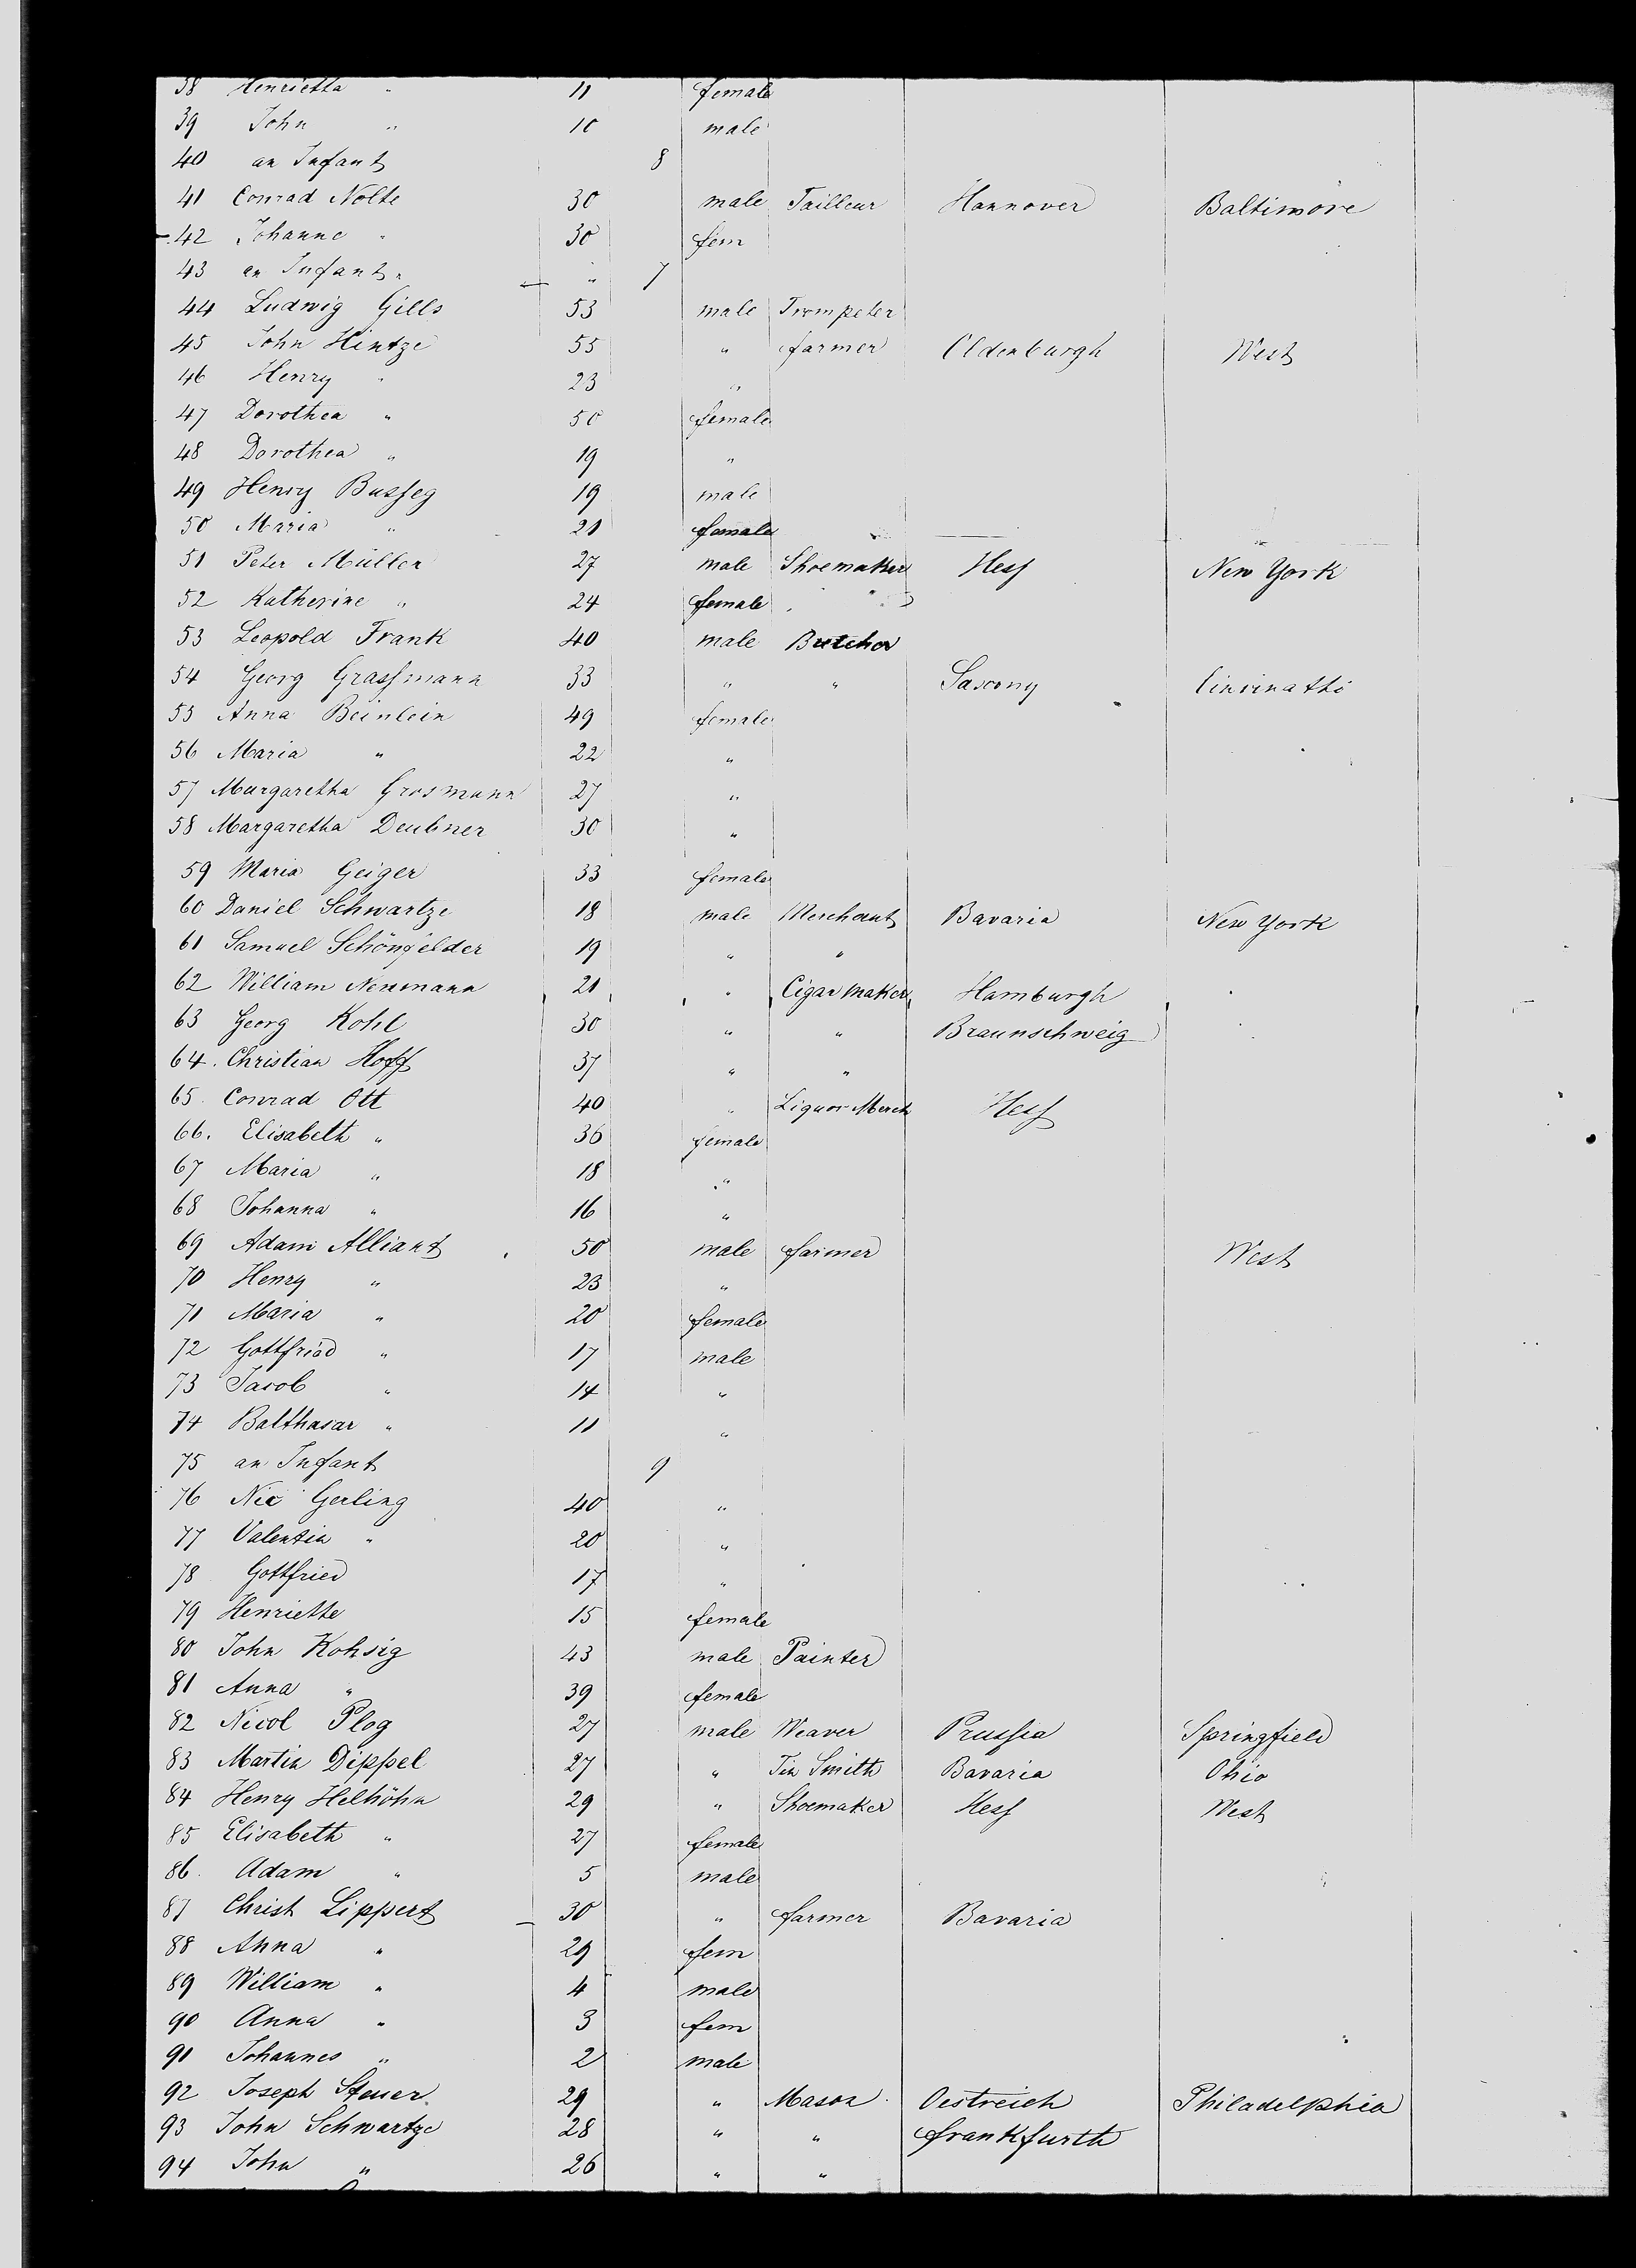 38 Henrietta " 11 female
39 John " 10 male
40 an Infant 8
41 Conrad Nolte 30 male Tailleur Hannover Baltimore
42 Johanne " 30 fem
43 an Infant " " 7
44 Ludwig Gills 53 male Trompeter
45 John Hintze 55 " farmer Oldenburgh West
46 Henry " 23 "
47 Dorothea " 50 female
48 Dorothea " 19 "
49 Henry Busseg 19 male
50 Maria " 21 female
51 Peter Müller 27 male Shoemaker Hess New York
52 Katherine " 24 female
53 Leopold Frank 40 male Butcher
54 Georg Grassmann 33 " " Saxony Cincinatti
55 Anna Beinlein 49 female
56 Maria " 22 "
57 Margaretha Grosmann 27 "
58 Margaretha Deubner 30 "
59 Maria Geiger 33 female
60 Daniel Schwartze 18 male Merchant Bavaria New York
61 Samuel Schönfelder 19 " "
62 William Neumann 21 " Cigar maker Hamburgh
63 Georg Kohl 30 " " Braunschweig
64. Christian Hoff 37 " "
65. Conrad Ott 40 " Liquor Merch Hess
66. Elisabeth " 36 female
67 Maria " 18 "
68 Johanna " 16 "
69 Adam Alliant 50 male farmer West
70 Henry " 23 "
71 Maria " 20 female
72 Gottfried " 17 male
73 Jacob " 14 "
74 Balthasar " 11 "
75 an Infant 9
76 Nic Gerling 40 "
77 Valentin " 20 "
78 Gottfried 17 "
79 Henriette 15 female
80 John Kohsig 43 male Painter
81 Anna " 39 female
82 Nicol Plog 27 male Weaver Prussia Springfield
83 Martin Dippel 27 " Tin Smith Bavaria Ohio
84 Henry Helhöhn 29 " Shoemaker Hess West
85 Elisabeth " 27 female
86. Adam " 5 male
87 Christ Lippert 30 " farmer Bavaria
88 Anna " 29 fem
89 William " 4 male
90 Anna " 3 fem
91 Johannes " 2 male
92 Joseph Steuer 29 " Mason Oestreich Philadelphia
93 John Schwartze 28 " " frankfurth
94 John " 26 " "